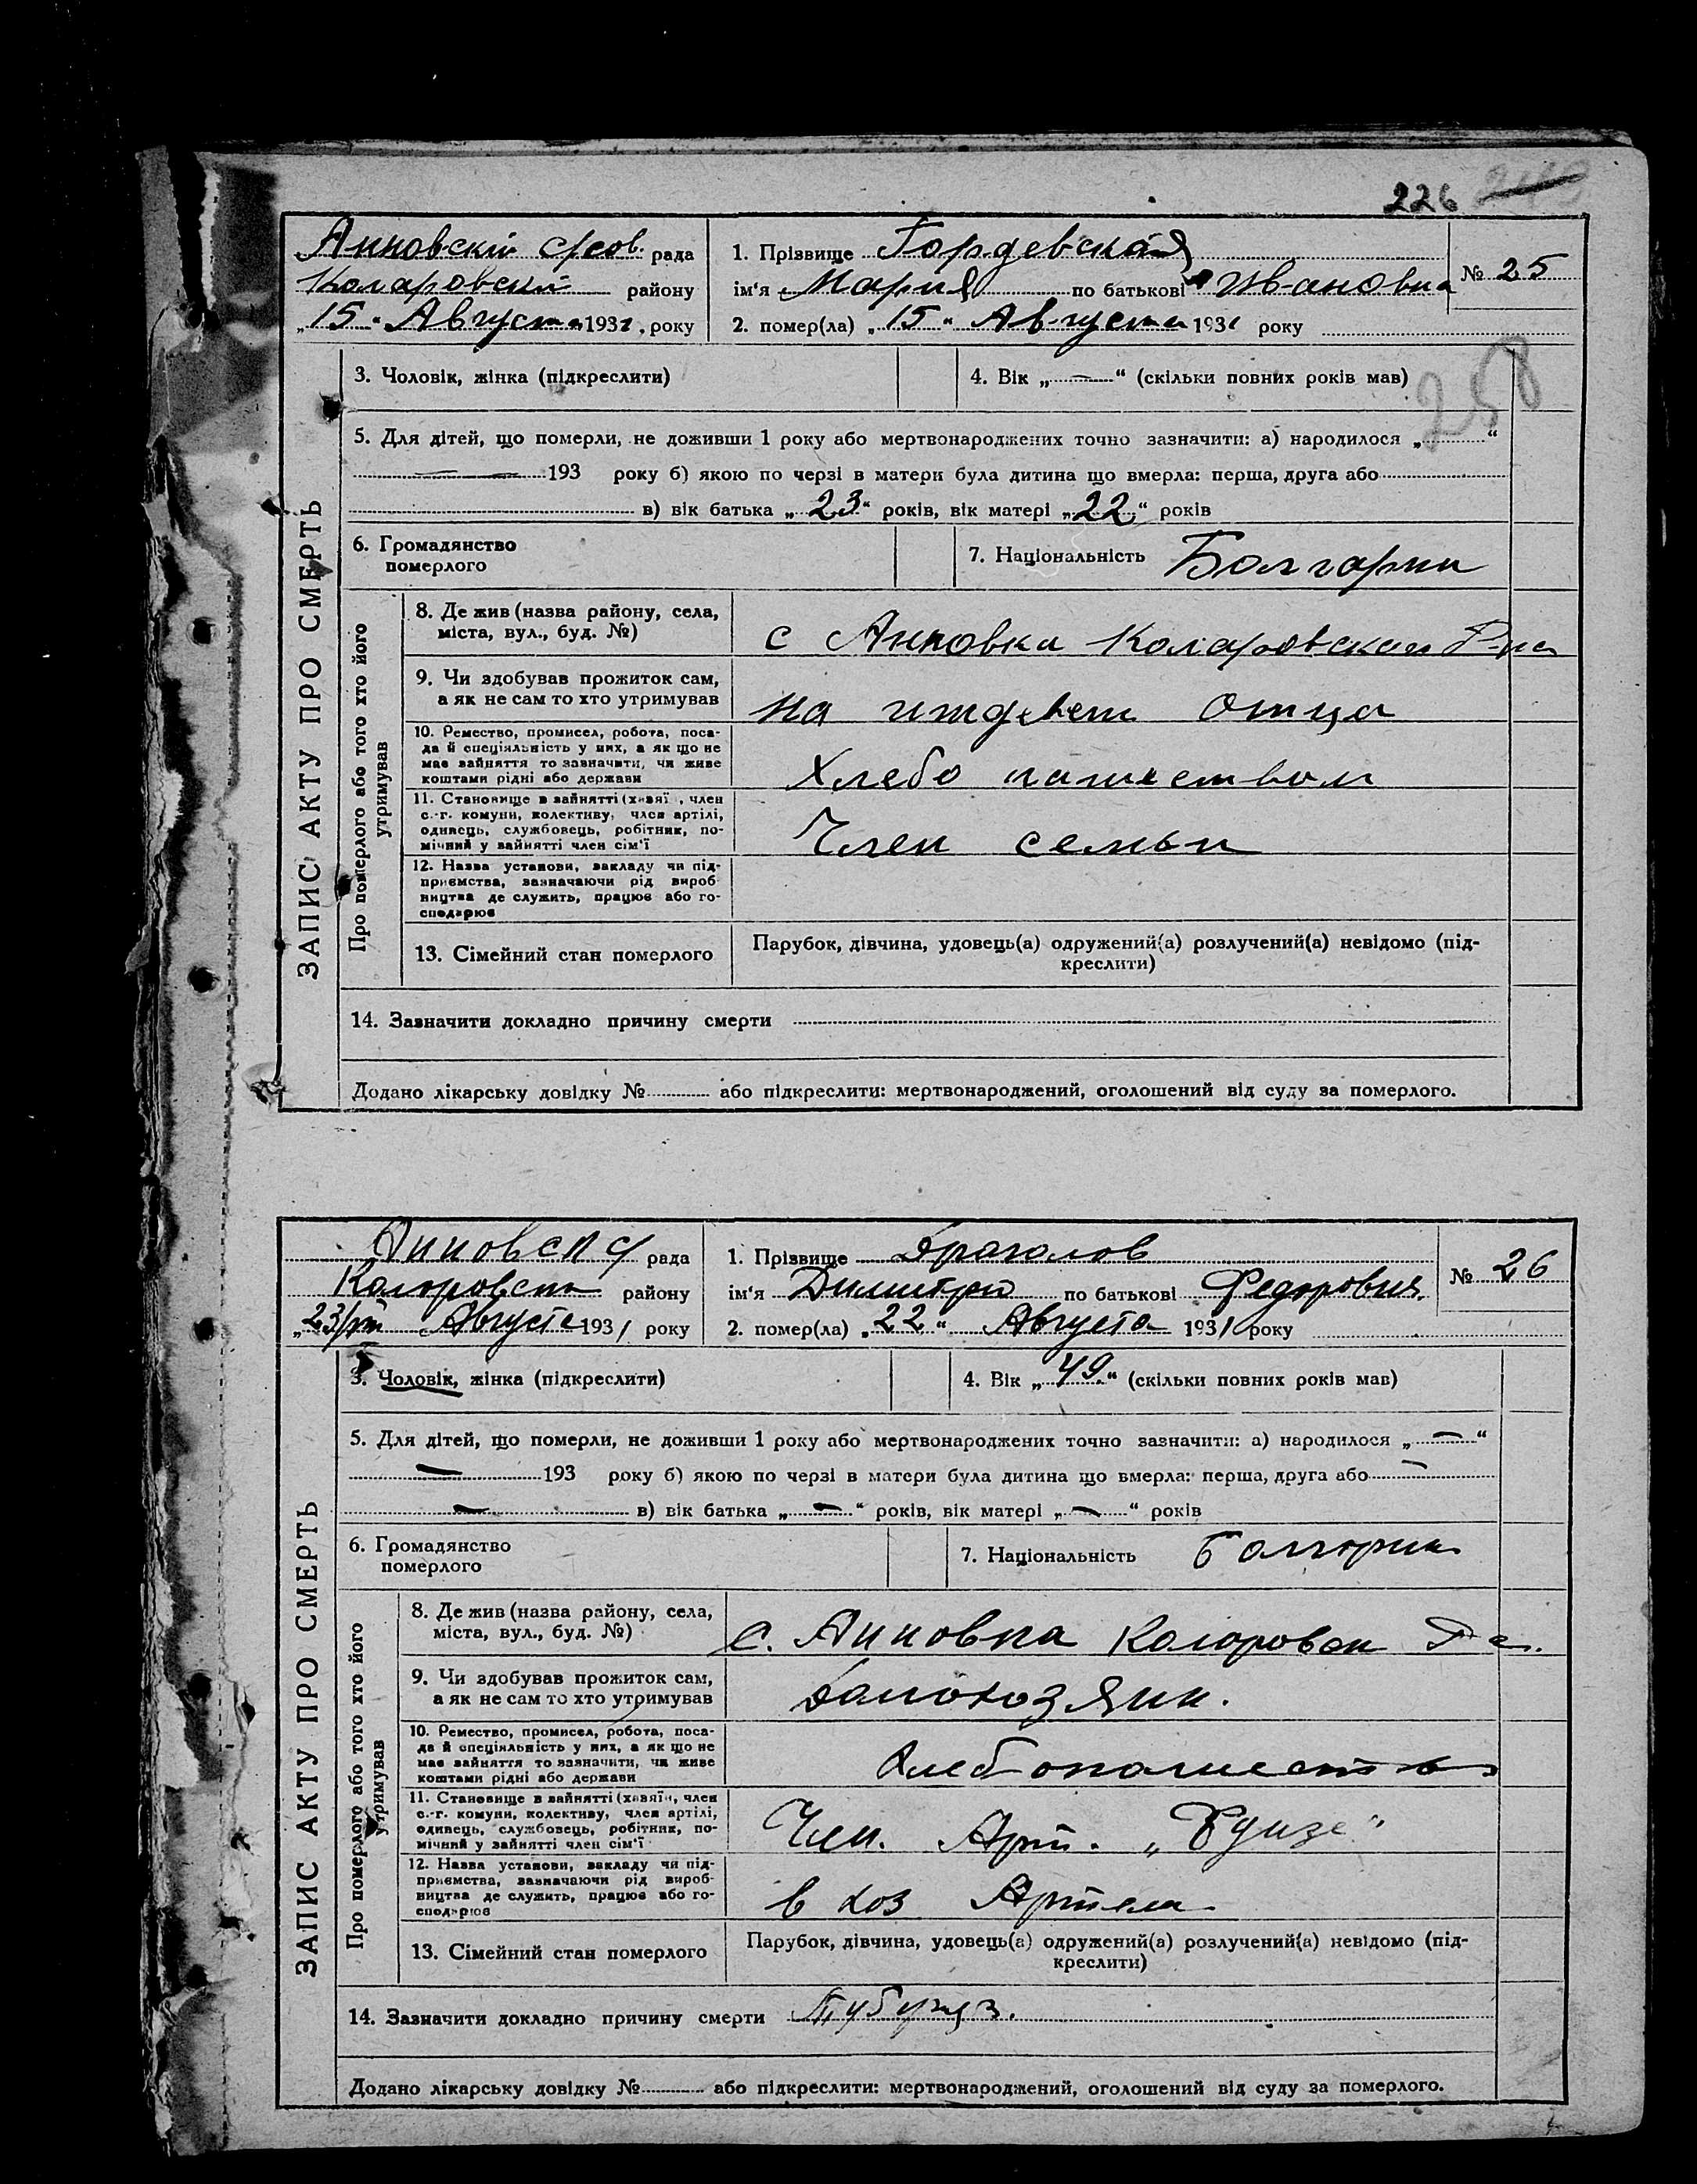 226
Анновскій с/сов. рада
Коларовский району
„15“ Августа 1931, року
1. Прізвище Гордевская
ім'я Мария по батькові Ивановна
2. помер(ла) „15“ Августа 1931 року
№ 25
ЗАПИС АКТУ ПРО СМЕРТЬ
3. Чоловік, жінка (підкреслити)
4. Вік „—“ (скільки повних років мав)
258
5. Для дітей, що померли, не доживши 1 року або мертвонароджених точно зазначити: а) народилося „ “
— 193 року б) якою по черзі в матери була дитина що вмерла: перша, друга або
в) вік батька „23“ років, вік матері „22“ років
6. Громадянство
померлого
7. Національність Болгарки
Про померлого або того хто його
утримував
8. Де жив (назва району, села,
міста, вул., буд. №)
с Анновка Коларовскаго Р-на
9. Чи здобував прожиток сам,
а як не сам то хто утримував
на иждевен отца
10. Ремество, промисел, робота, поса-
да й спеціяльність у них, а як що не
має зайняття то зазначити, чи живе
коштами рідні або держави
Хлебо пашеством
11. Становище в зайнятті (хазяї , член
с.-г. комуни, колективу, член артілі,
одинець, службовець, робітник, по-
мічний у зайнятті член сім'ї
Член семьи
12. Назва установи, закладу чи під-
приємства, зазначаючи рід вироб-
ництва де служить, працює або го-
сподарює
13. Сімейний стан померлого
Парубок, дівчина, удовець(а) одружений(а) розлучений(а) невідомо (під-
креслити)
14. Зазначити докладно причину смерти
Додано лікарську довідку № або підкреслити: мертвонароджений, оголошений від суду за померлого.
Анновск с/ рада
Коларовска району
„23/VIII Августа 1931 року
1. Прізвище Драголов
ім'я Димитрий по батькові Федорович
2. помер(ла) „22“ Августа 1931 року
№ 26
ЗАПИС АКТУ ПРО СМЕРТЬ
3. Чоловік, жінка (підкреслити)
4. Вік „49“ (скільки повних років мав)
5. Для дітей, що померли, не доживши 1 року або мертвонароджених точно зазначити: а) народилося „—“
— 193 року б) якою по черзі в матери була дитина що вмерла: перша, друга або —
— в) вік батька „—“ років, вік матері „—“ років
6. Громадянство
померлого
7. Національність Болгарин
Про померлого або того хто його
утримував
8. Де жив (назва району, села,
міста, вул., буд. №)
с. Анновка Коларовск Р-а.
9. Чи здобував прожиток сам,
а як не сам то хто утримував
Домохозяин.
10. Ремество, промисел, робота, поса-
да й спеціяльність у них, а як що не
має зайняття то зазначити, чи живе
коштами рідні або держави
Хлебопашество
11. Становище в зайнятті (хазяїн, член
с.-г. комуни, колективу, член артілі,
одинець, службовець, робітник, по-
мічний у зайнятті член сім'ї
Член. Арт. „Фунзе“
12. Назва установи, закладу чи під-
приємства, зазначаючи рід вироб-
ництва де служить, працює або го-
сподарює
в хоз Артели
13. Сімейний стан померлого
Парубок, дівчина, удовець(а) одружений(а) розлучений(а) невідомо (під-
креслити)
14. Зазначити докладно причину смерти Тубуркуз.
Додано лікарську довідку № або підкреслити: мертвонароджений, оголошений від суду за померлого.